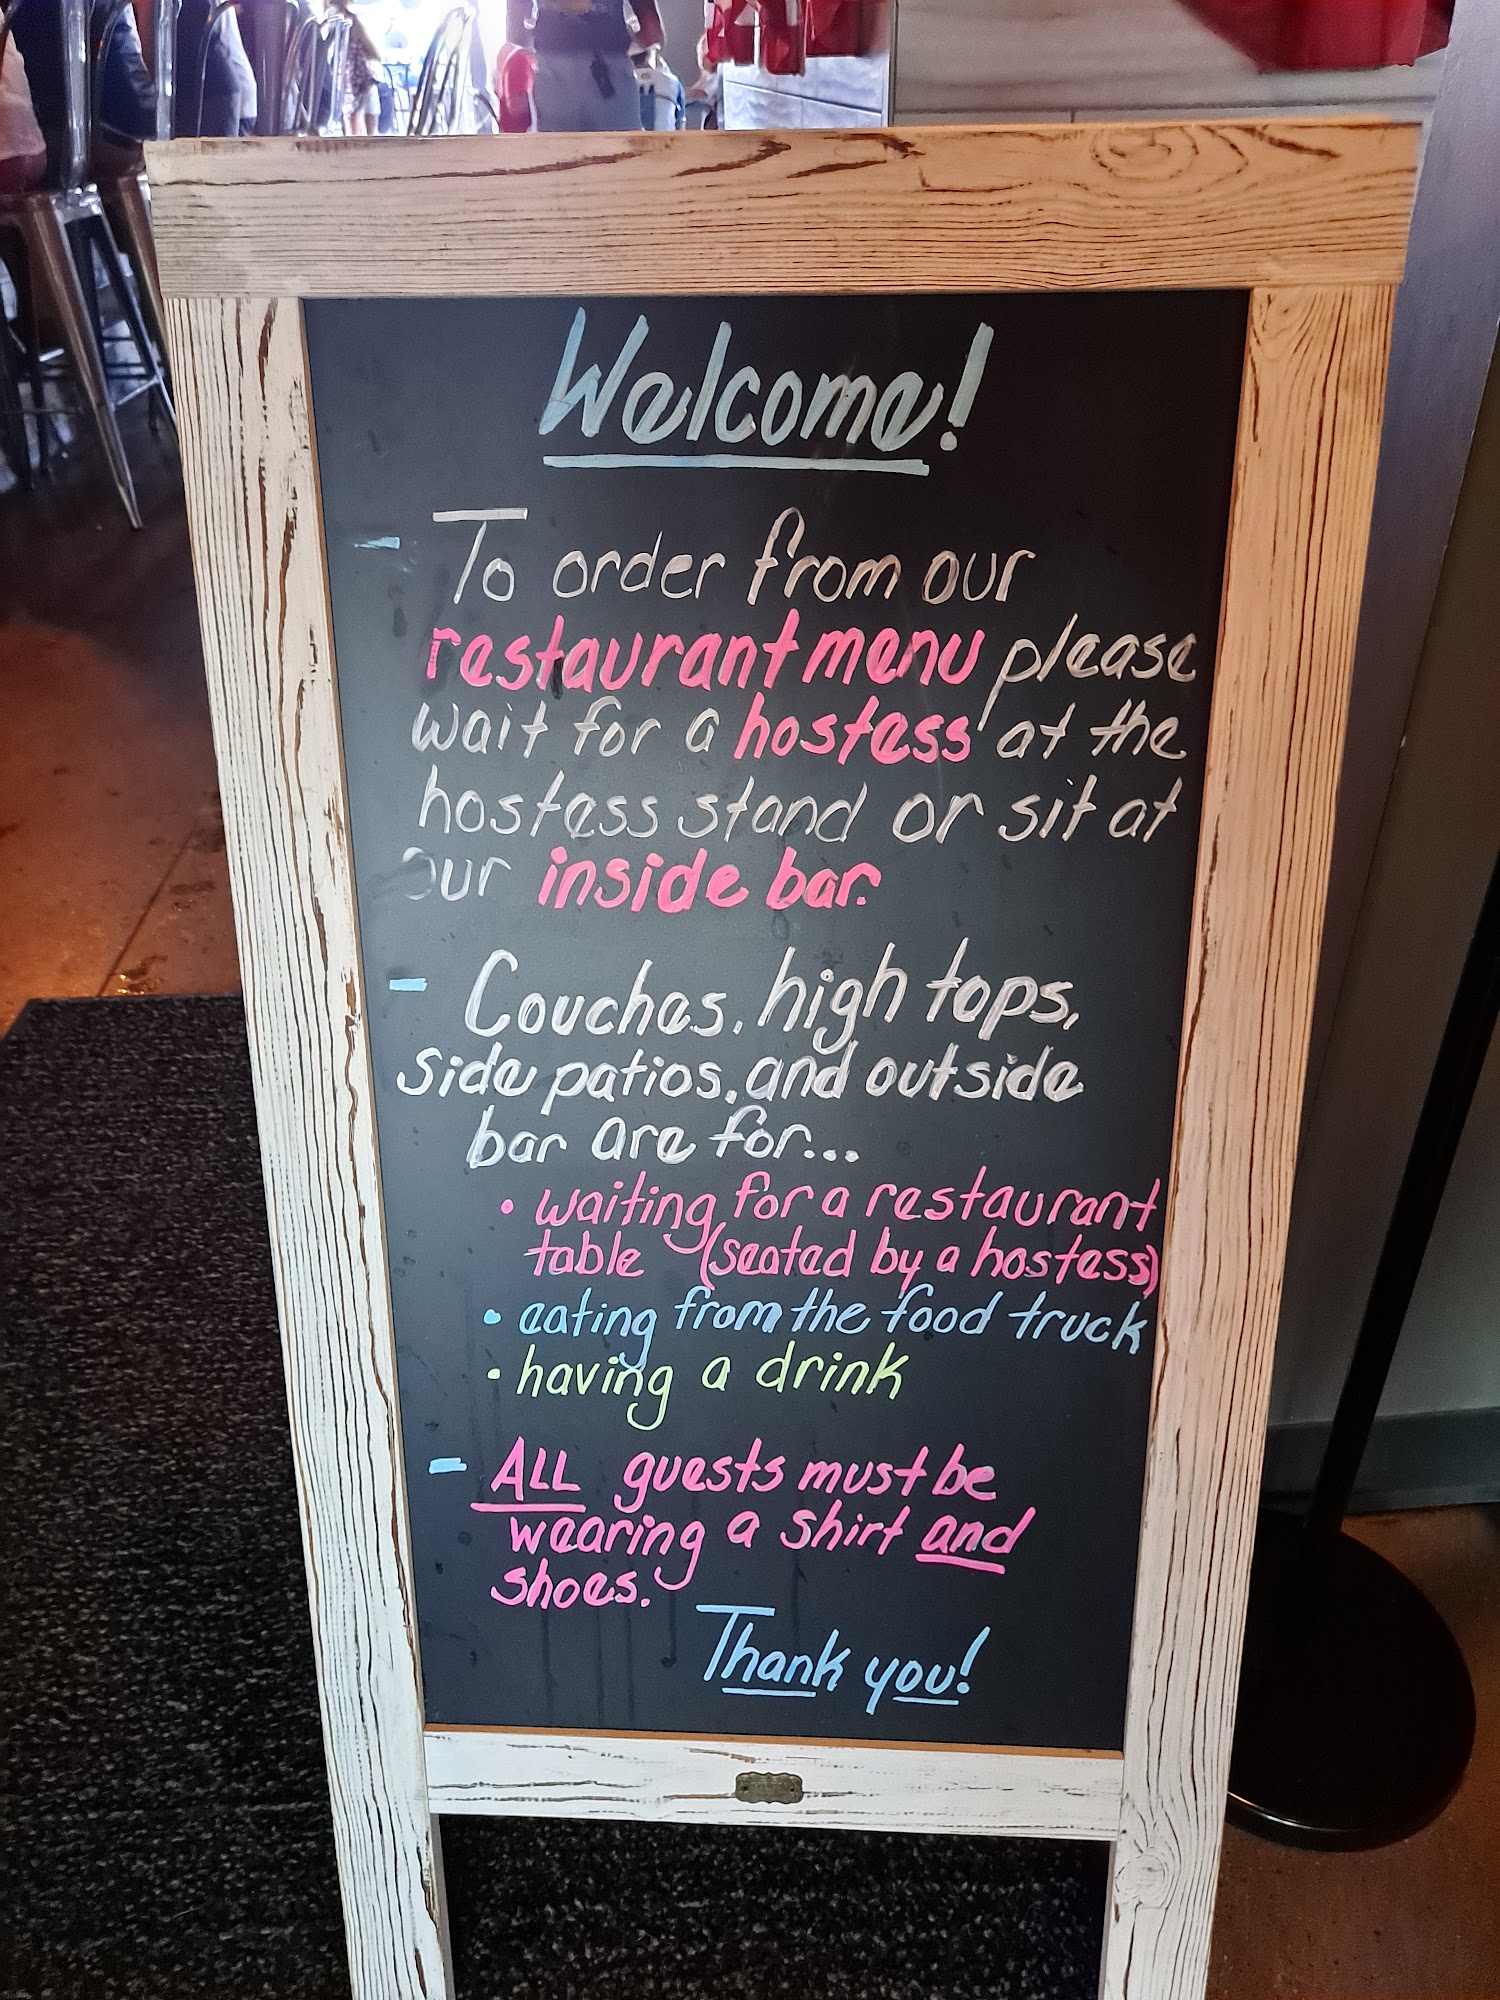 Welcome!
- To order from our
restaurant menu please
wait for a hostess at the
hostess stand or sit at
our inside bar.
- Couches, high tops,
side patios, and outside
bar are for...
• waiting for a restaurant
table (seated by a hostess)
• eating from the food truck
• having a drink
- ALL guests must be
wearing a shirt and
shoes.
Thank you!